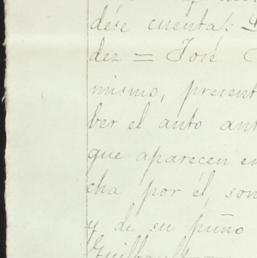 dése cuenta:
dez = José
mismo, present
ber el auto ant
que aparecen en
cha por él, son
y de su puño